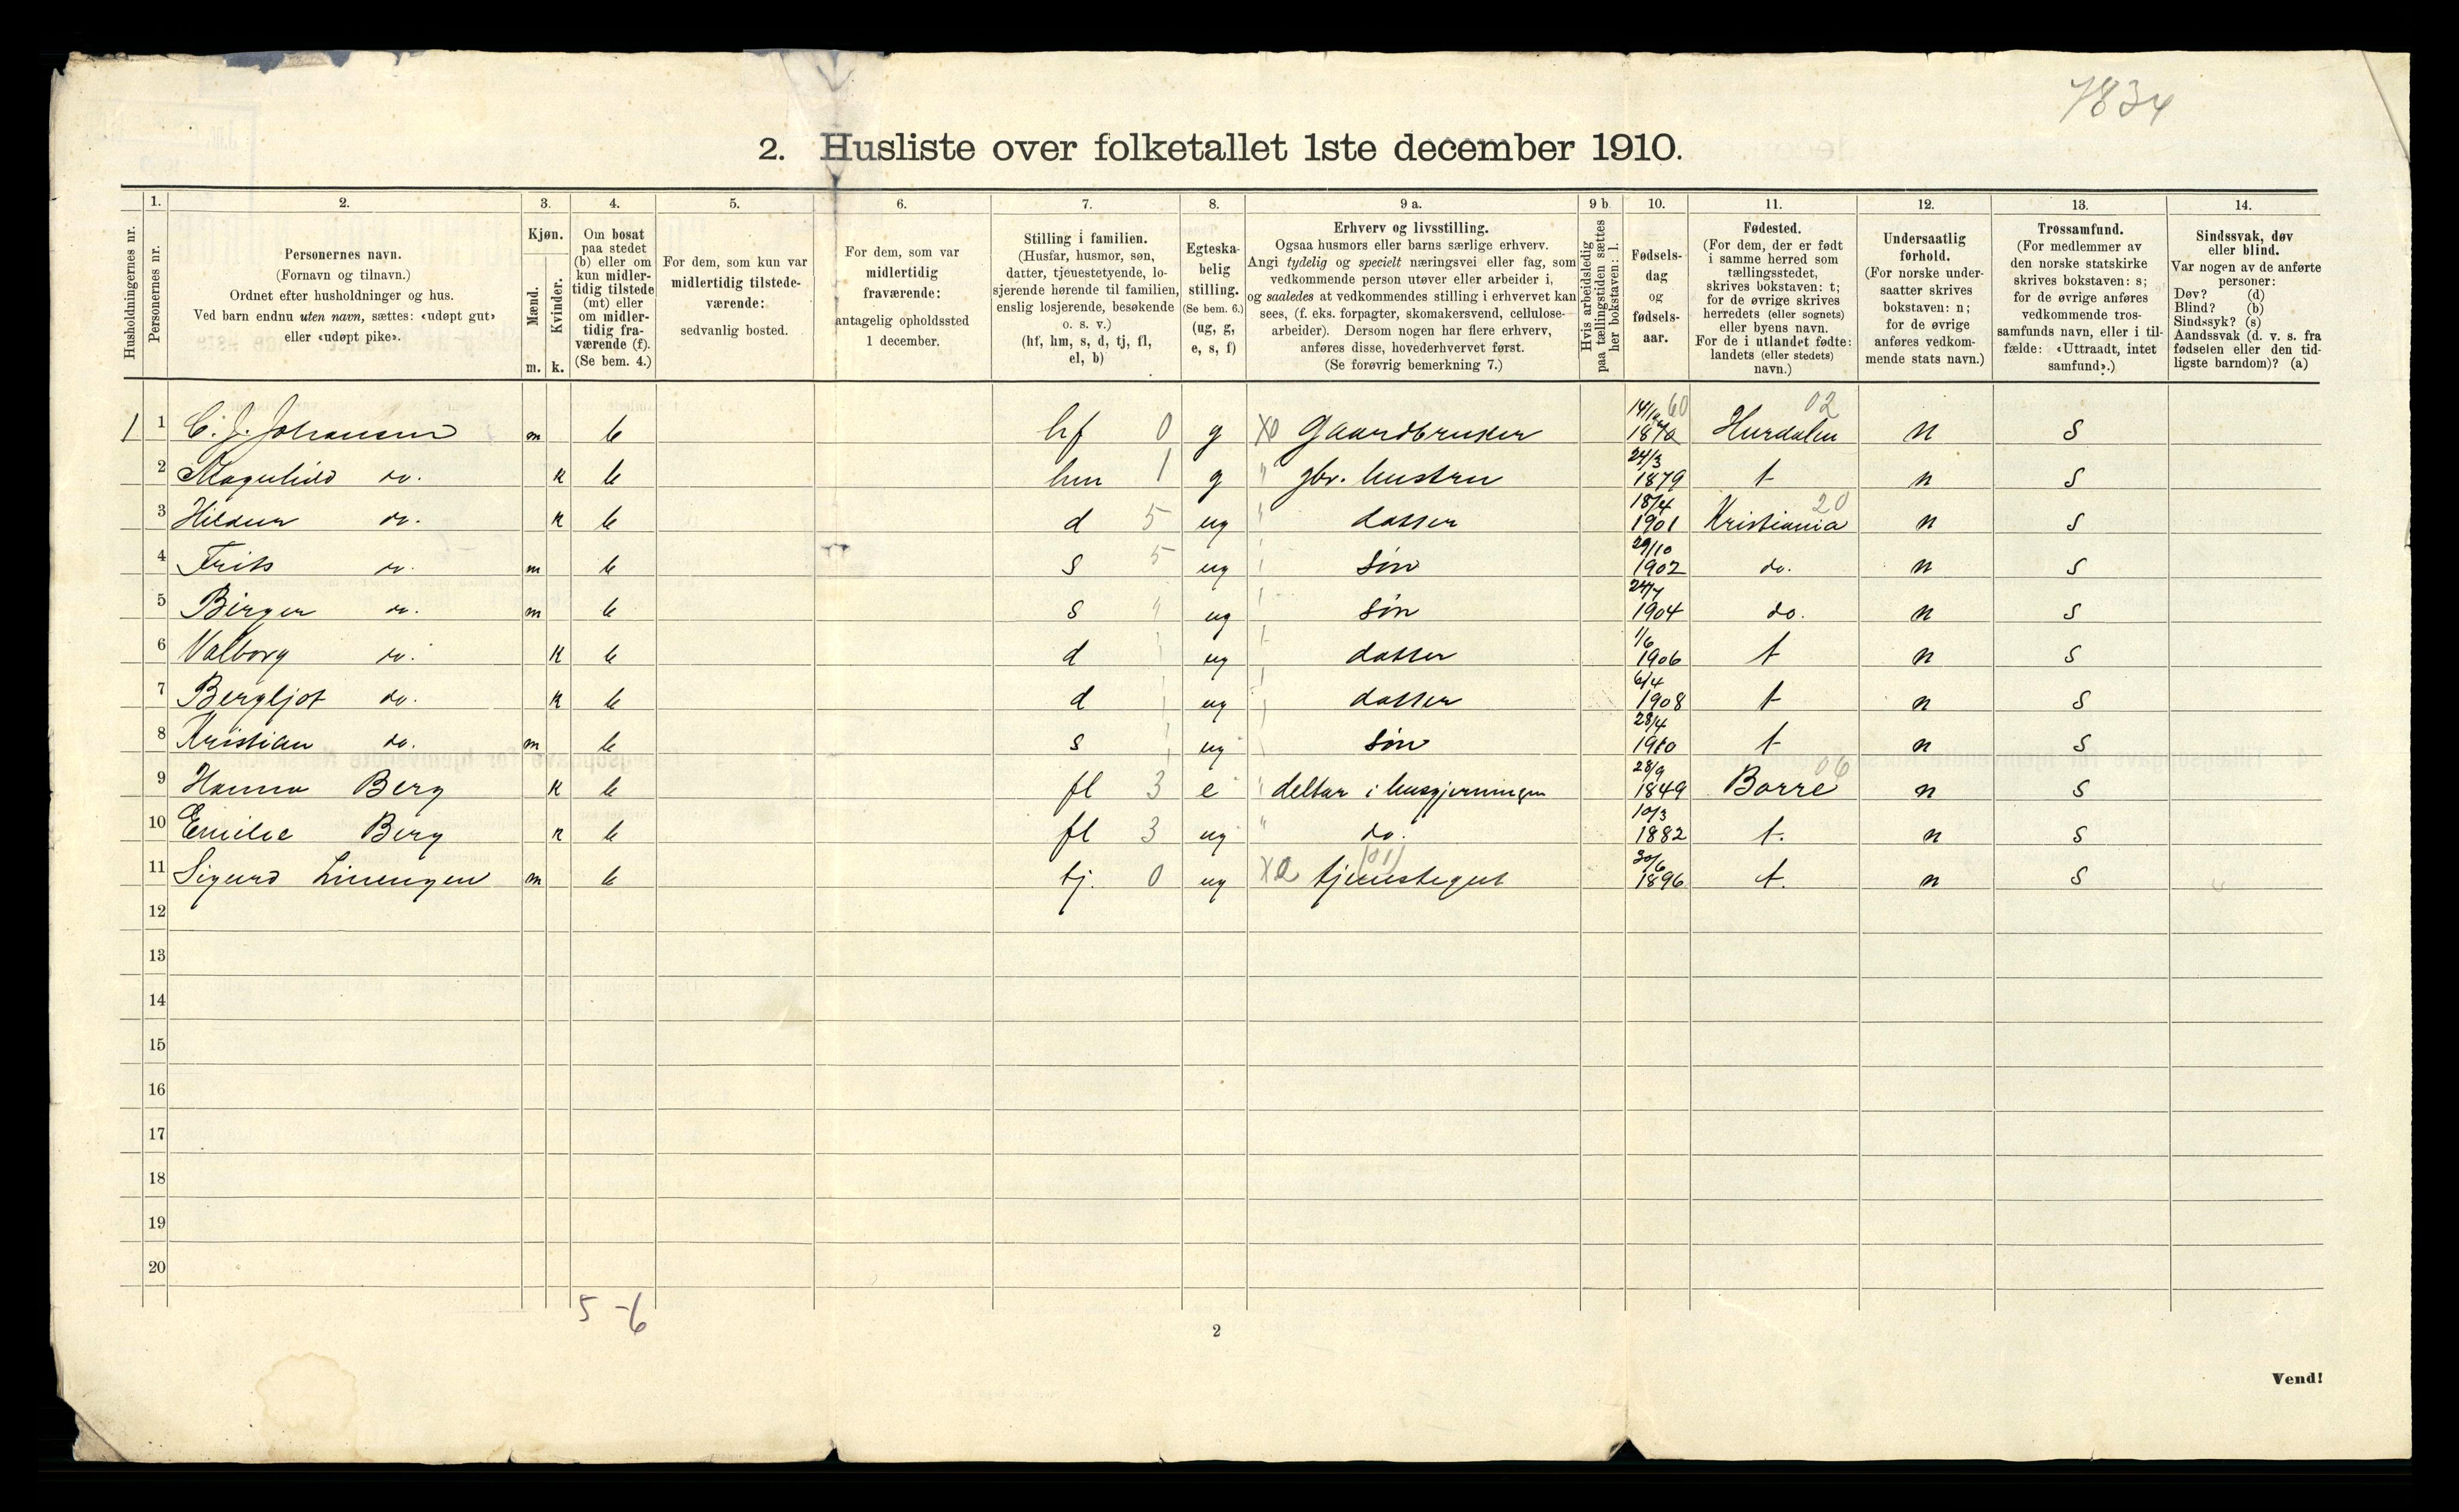 7834
2. Husliste over folketallet 1ste december 1910.
Husholdningernes nr.
1. Personernes nr.
2. Personernes navn.
(Fornavn og tilnavn.)
Ordnet efter husholdninger og hus.
Ved barn endnu uten navn, sættes: «udøpt gut»
eller «udøpt pike».
3. Kjøn.
Mænd. Kvinder.
m. k.
4. Om bosat
paa stedet
(b) eller om
kun midler-
tidig tilstede
(mt) eller
om midler-
tidig fra-
værende (f).
(Se bem. 4.)
5. For dem, som kun var
midlertidig tilstede-
værende:
sedvanlig bosted.
6. For dem, som var
midlertidig
fraværende:
antagelig opholdssted
1 december.
7. Stilling i familien.
(Husfar, husmor, søn,
datter, tjenestetyende, lo-
sjerende hørende til familien,
enslig losjerende, besøkende
o. s. v.)
(hf, hm, s, d, tj, fl,
el, b)
8. Egteska-
belig
stilling.
(Se bem. 6.)
(ug, g,
e, s, f)
9 a. Erhverv og livsstilling.
Ogsaa husmors eller barns særlige erhverv.
Angi tydelig og specielt næringsvei eller fag, som
vedkommende person utøver eller arbeider i,
og saaledes at vedkommendes stilling i erhvervet kan
sees, (f. eks. forpagter, skomakersvend, cellulose-
arbeider). Dersom nogen har flere erhverv,
anføres disse, hovederhvervet først.
(Se forøvrig bemerkning 7.)
9 b. Hvis arbeidsledig
paa tællingstiden sættes
her bokstaven: l.
10. Fødsels-
dag
og
fødsels-
aar.
11. Fødested.
(For dem, der er født
i samme herred som
tællingsstedet,
skrives bokstaven: t;
for de øvrige skrives
herredets (eller sognets)
eller byens navn.
For de i utlandet fødte:
landets (eller stedets)
navn.)
12. Undersaatlig
forhold.
(For norske under-
saatter skrives
bokstaven: n;
for de øvrige
anføres vedkom-
mende stats navn.)
13. Trossamfund.
(For medlemmer av
den norske statskirke
skrives bokstaven: s;
for de øvrige anføres
vedkommende tros-
samfunds navn, eller i til-
fælde: «Uttraadt, intet
samfund».)
14. Sindssvak, døv
eller blind.
Var nogen av de anførte
personer:
Døv? (d)
Blind? (b)
Sindssyk? (s)
Aandssvak (d. v. s. fra
fødselen eller den tid-
ligste barndom)? (a)
1 1 C. J. Johansen m b hf 0 g X0 Gaardbruker 60 Hurdalen 02 n s
2 Magnhild do. k b hm 1 g " gbr. hustru 24/3 1879 t n s
3 Hildur do. k b d 5 ug " datter 18/4 1901 Kristiania 20 n s
4 Frits do. m b s 5 ug søn 29/10 1902 do. n s
5 Birger do. m b s " ug søn 24/7 1904 do. n s
6 Valborg do. k b d ug datter 1/6 1906 t n s
7 Bergljot do. k b d ug datter 6/4 1908 t n s
8 Kristian do. m b s ug søn 28/4 1910 t n s
9 Hanna Berg k b fl 3 e " deltar i husgjerningen 28/9 1849 Borre 06 n s
10 Emilie Berg k b fl 3 ug " do. 10/3 1882 t. n s
11 Sigurd Linengen m b tj. 0 ug X2 tjenstegut (01) 30/6 1896 t. n s
12
13
14
15
16
17
18
19
20
5 - 6
2
Vend!